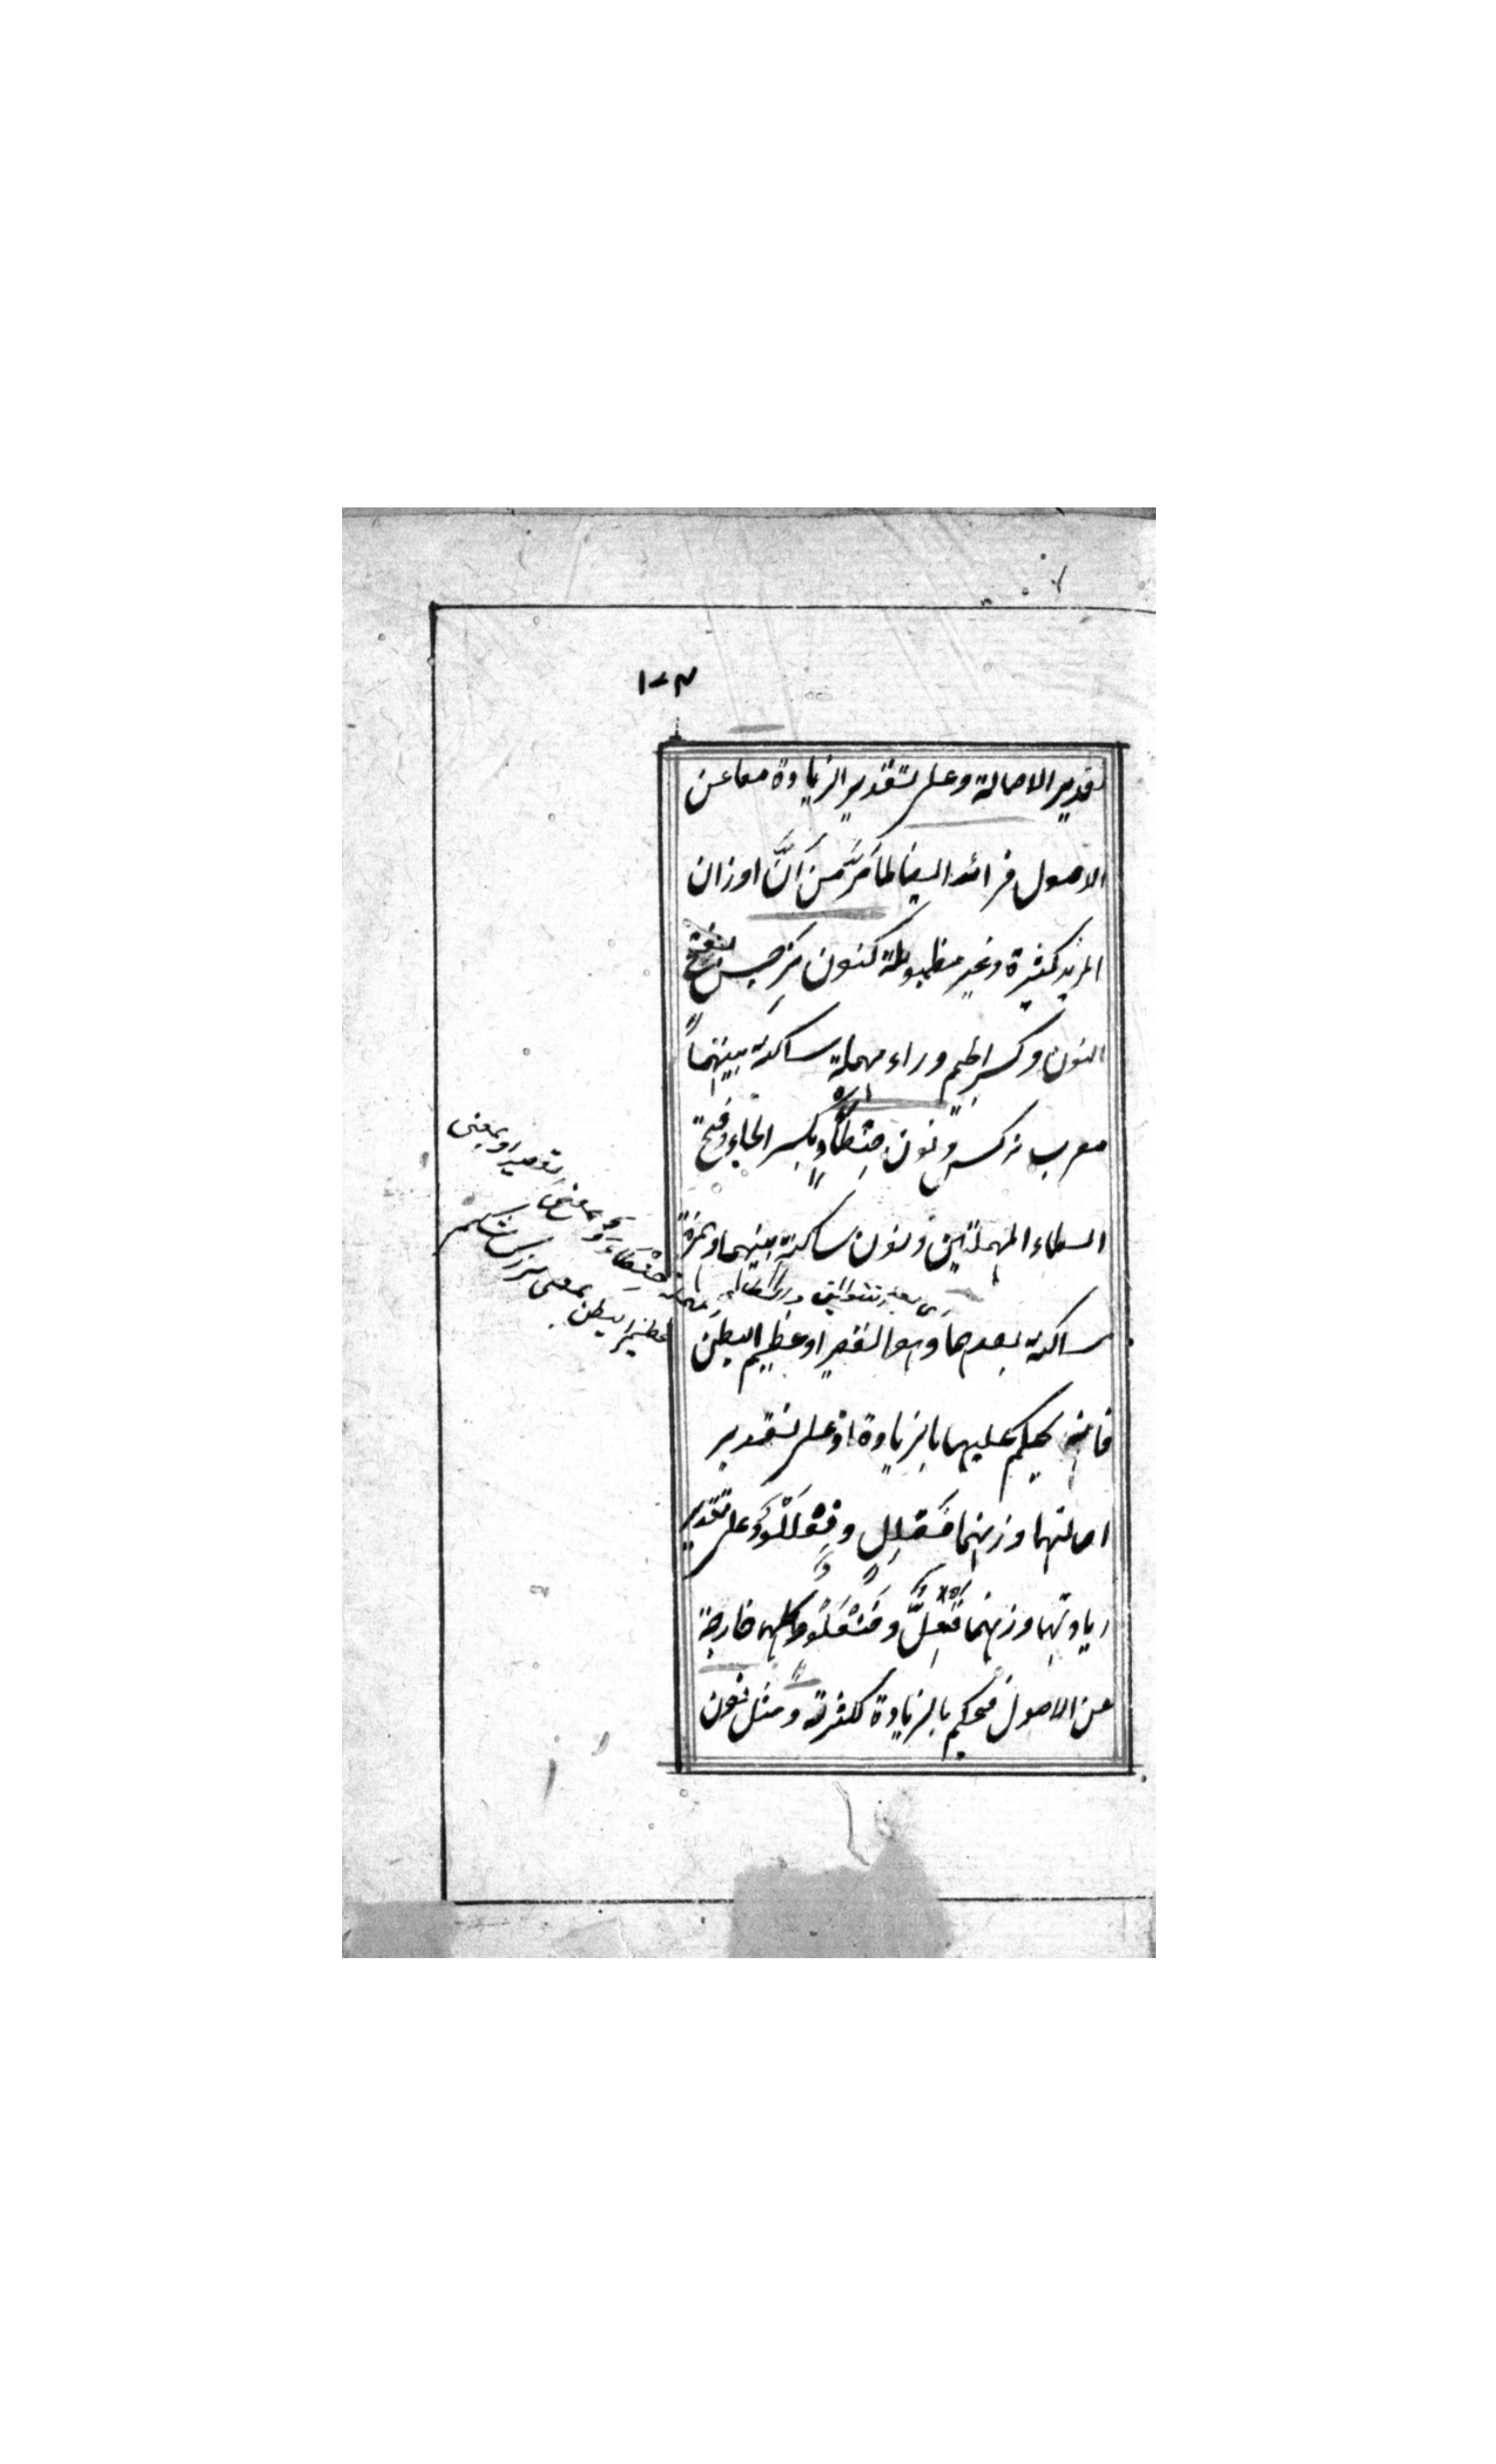 ١٠٣
تقدير الاصالة وعلى تقدير الزيادة معا عن
الاصول فزائد ايضا لما مَرَّ مِنْ اَنَّ اوزان
المزيد كثيرة وغير مضبوطة كنون نرجس بفتح
النون وكسر الجيم وراء مهملة ساكنة بينهما
معرب نركس ونون حنطأو بكسر الحاء وفتح
الطاء المهملتين ونون ساكنة بينهما وهمزة
ساكنة بعدهما وهو القصير او عظيم البطن
فانه يحكم عليهما بالزيادة اذ على تقدير
اصالتهما وزنهما فَعْلِلٍ وفِعْلَلْوٌ وعلى تقدير
زيادتهما وزنهما نَفْعِلٌ وفنعلو وكلها خارجة
عن الاصول فحكم بالزيادة لكثرته ومثل نون
القصير او بمعنى
عظيم البطن بمعنى بزرك شكم